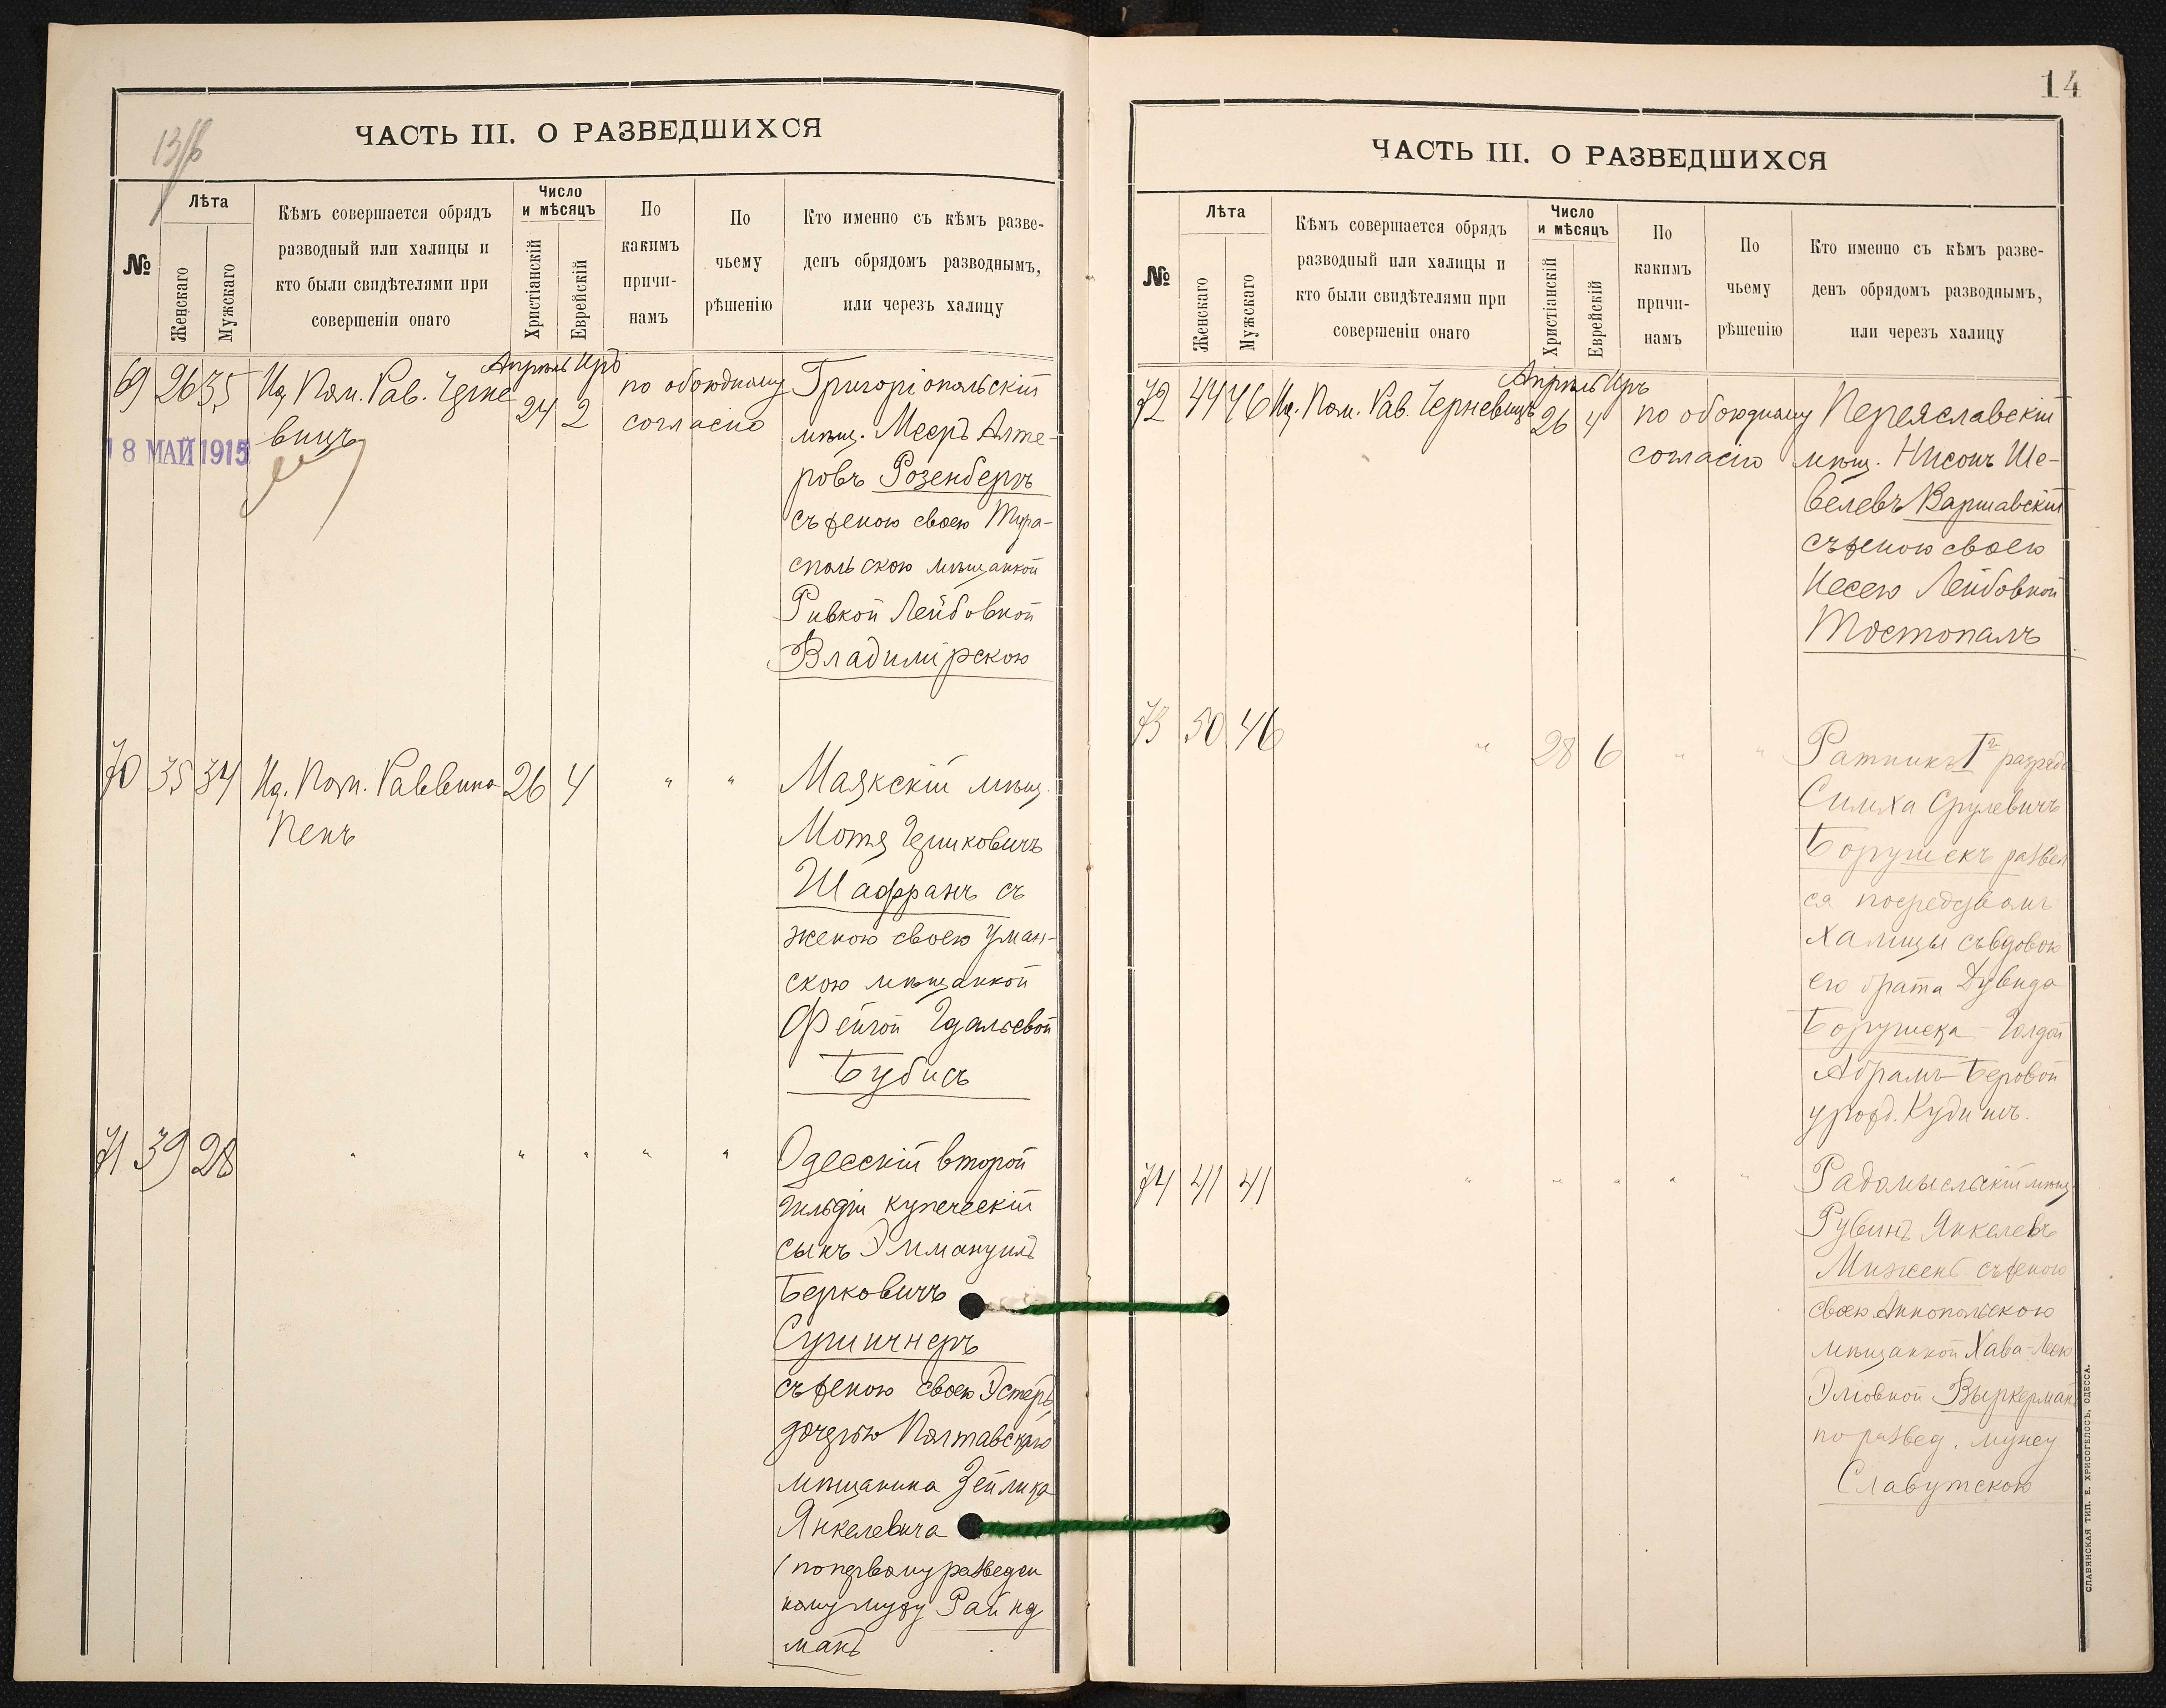 13/б
ЧАСТЬ III. О РАЗВЕДШИХСЯ
№
Лѣта
Женскаго
Мужскаго
Кѣмъ совершается обрядъ
разводный или халицы и
кто были свидѣтелями при
совершеніи онаго
Число
и мѣсяцъ
Христіанскій
Еврейскій
По
какимъ
причи-
намъ
По
чьему
рѣшенію
Кто именно съ кѣмъ разве-
денъ обрядомъ разводнымъ,
или черезъ халицу
69 26 35 Ид. Пом. Рав. Черне
вицъ
18 МАЙ 1915
Апрѣль Иръ
24 2
по обоюдному
согласію
Григоріопольскій
мѣщ. Мееръ Алте-
ровъ Розенбергъ
съ женою своею Тира-
спольскою мѣщанкой
Ривкой Лейбовной
Владимірскою
70 35 34 Ид. Пом. Раввина
Пенъ
26 4 " "
Маякскій мѣщ.
Мотя Гершковичъ
Шафранъ съ
женою своею Уман-
скою мѣщанкой
Фейгой Гдальевой
Бубисъ
71 39 28 " " " " "
Одесскій второй
гильдіи купеческій
сынъ Эммануилъ
Берковичъ
Сушичнеръ
съ женою своею Эстеръ,
дочерью Полтавскаго
мѣщанина Зейлика
Янкелевича
(по первому разведен
ному мужу Райнд
манъ
14
ЧАСТЬ III. О РАЗВЕДШИХСЯ
№
Лѣта
Женскаго
Мужскаго
Кѣмъ совершается обрядъ
разводный или халицы и
кто были свидѣтелями при
совершеніи онаго
Число
и мѣсяцъ
Христіанскій
Еврейскій
По
какимъ
причи-
намъ
По
чьему
рѣшенію
Кто именно съ кѣмъ разве-
денъ обрядомъ разводнымъ,
или черезъ халицу
72 44 46 Ид. Пом. Рав. Черневицъ
Апрѣль Иръ
26 4
по обоюдному
согласію
Переяславскій
мѣщ. Нисонъ Ше-
велевъ Варшавскій
съ женою своею
Несею Лейбовной
Тостопалъ
73 50 46 " 28 6 " "
Ратникъ I го разряда
Симха Срулевичъ
Борушекъ развел
ся посредствомъ
халицы съ вдовою
его брата Дувида
Борушека Голдой
Абрамъ-Беровой
урожд. Кудишъ.
74 41 41 " " " " "
Радомысльскій мѣщ.
Рувинъ Янкелевъ
Миженъ съ женою
своею Аннопольскою
мѣщанкой Хава-Леею
Эліовной Выркерманъ
по развед. мужу
Славутскою
СЛАВЯНСКАЯ ТИП. Е. ХРИСОГЕЛОСЪ, ОДЕССА.